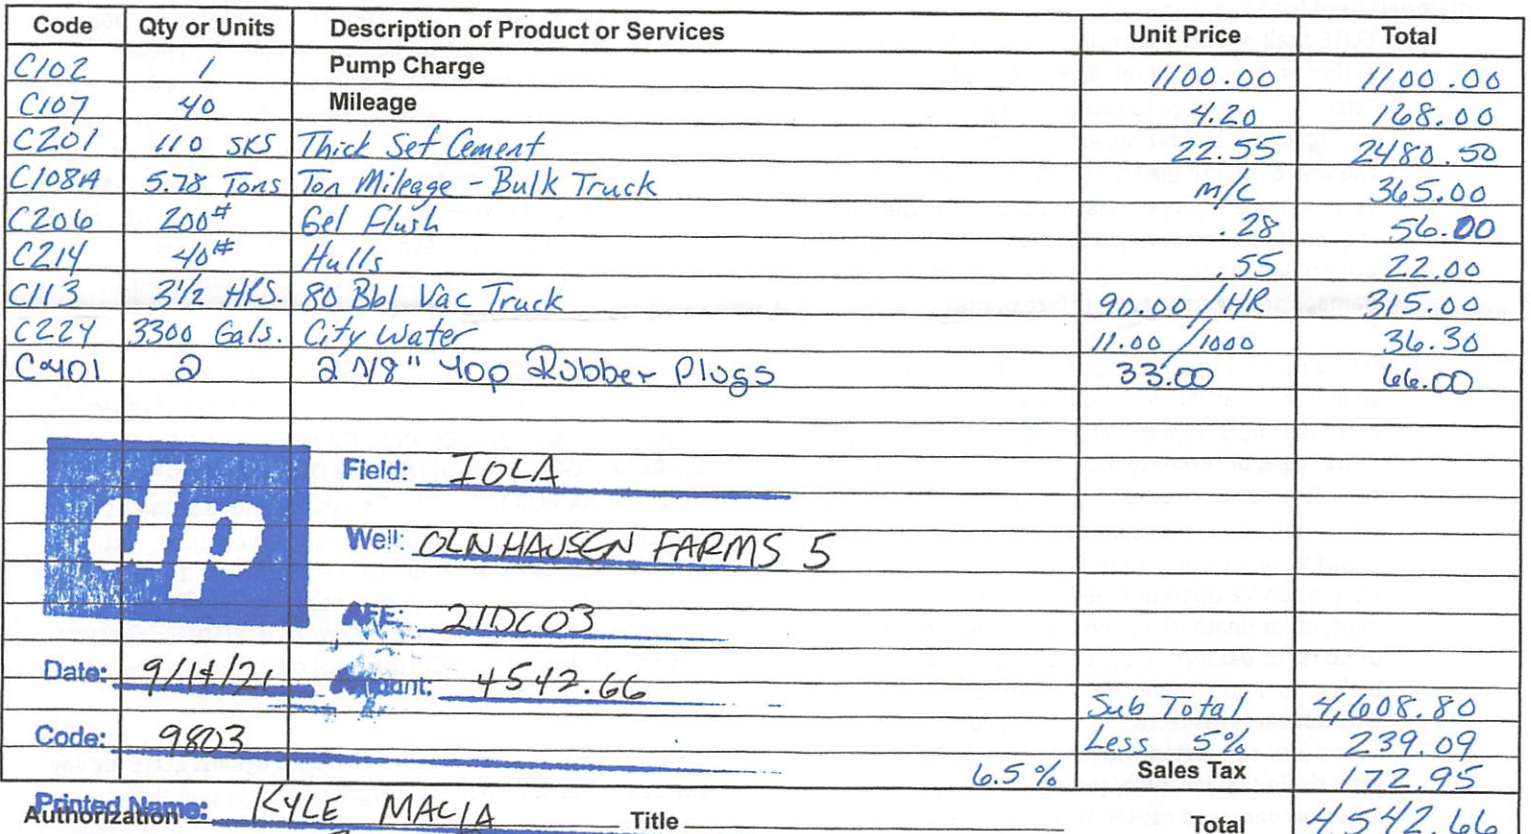 Code Qty or Units Description of Product or Services Unit Price Total
C102 1 Pump Charge 1100.00 1100.00
C107 40 Mileage 4.20 168.00
C201 110 SKS Thick Set Cement 22.55 2480.50
C108A 5.78 Tons Ton Mileage - Bulk Truck m/c 365.00
C206 200# Gel Flush .28 56.00
C214 40# Hulls .55 22.00
C113 3 1/2 HRS. 80 Bbl Vac Truck 90.00/HR 315.00
C224 3300 Gals. City Water 11.00/1000 36.30
C401 2 2 7/8" Top Rubber Plugs 33.00 66.00
dp
Field: IOLA
Well: OLNHAUSEN FARMS 5
AFE: 21DC03
Date: 9/14/21 Amount: 4542.66
Sub Total 4,608.80
Code: 9803 Less 5% 239.09
6.5% Sales Tax 172.95
Printed Name: KYLE MACIA
Authorization Title Total 4542.66